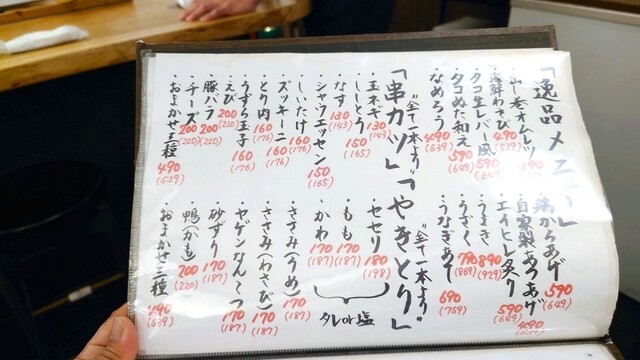 「逸品メニュー」
・だし巻オムレツ 490 (539)
・海鮮わさび
・タコ生レバー風 590 (649)
・タコぬた和え 590 (649)
・なめろう 490 (539)
・鶏からあげ 590 (649)
・自家製あつあげ 490 (539)
・エイヒレ炙り 590 (649)
・うまき 890 (929)
・うざく 790 (869)
・うなぎあて 690 (759)
「串カツ」
"全て一本より"
・玉ネギ 130 (143)
・ししとう 150 (165)
・なす 130 (143)
・シャウエッセン 150 (165)
・しいたけ 160 (176)
・ズッキーニ 160 (176)
・とり肉 160 (176)
・うずら玉子 160 (176)
・えび 200 (220)
・豚バラ 200 (220)
・チーズ 200 (220)
・おまかせ三種 490 (539)
「やきとり」
"全て一本より"
・セセリ 180 (198)
・もも 170 (187)
・かわ 170 (187)
タレor塩
・ささみ(うめ) 170 (187)
・ささみ(わさび) 170 (187)
・ヤゲンなんこつ 170 (187)
・砂ずり 170 (187)
・鴨(かも) 200 (220)
・おまかせ三種 490 (539)